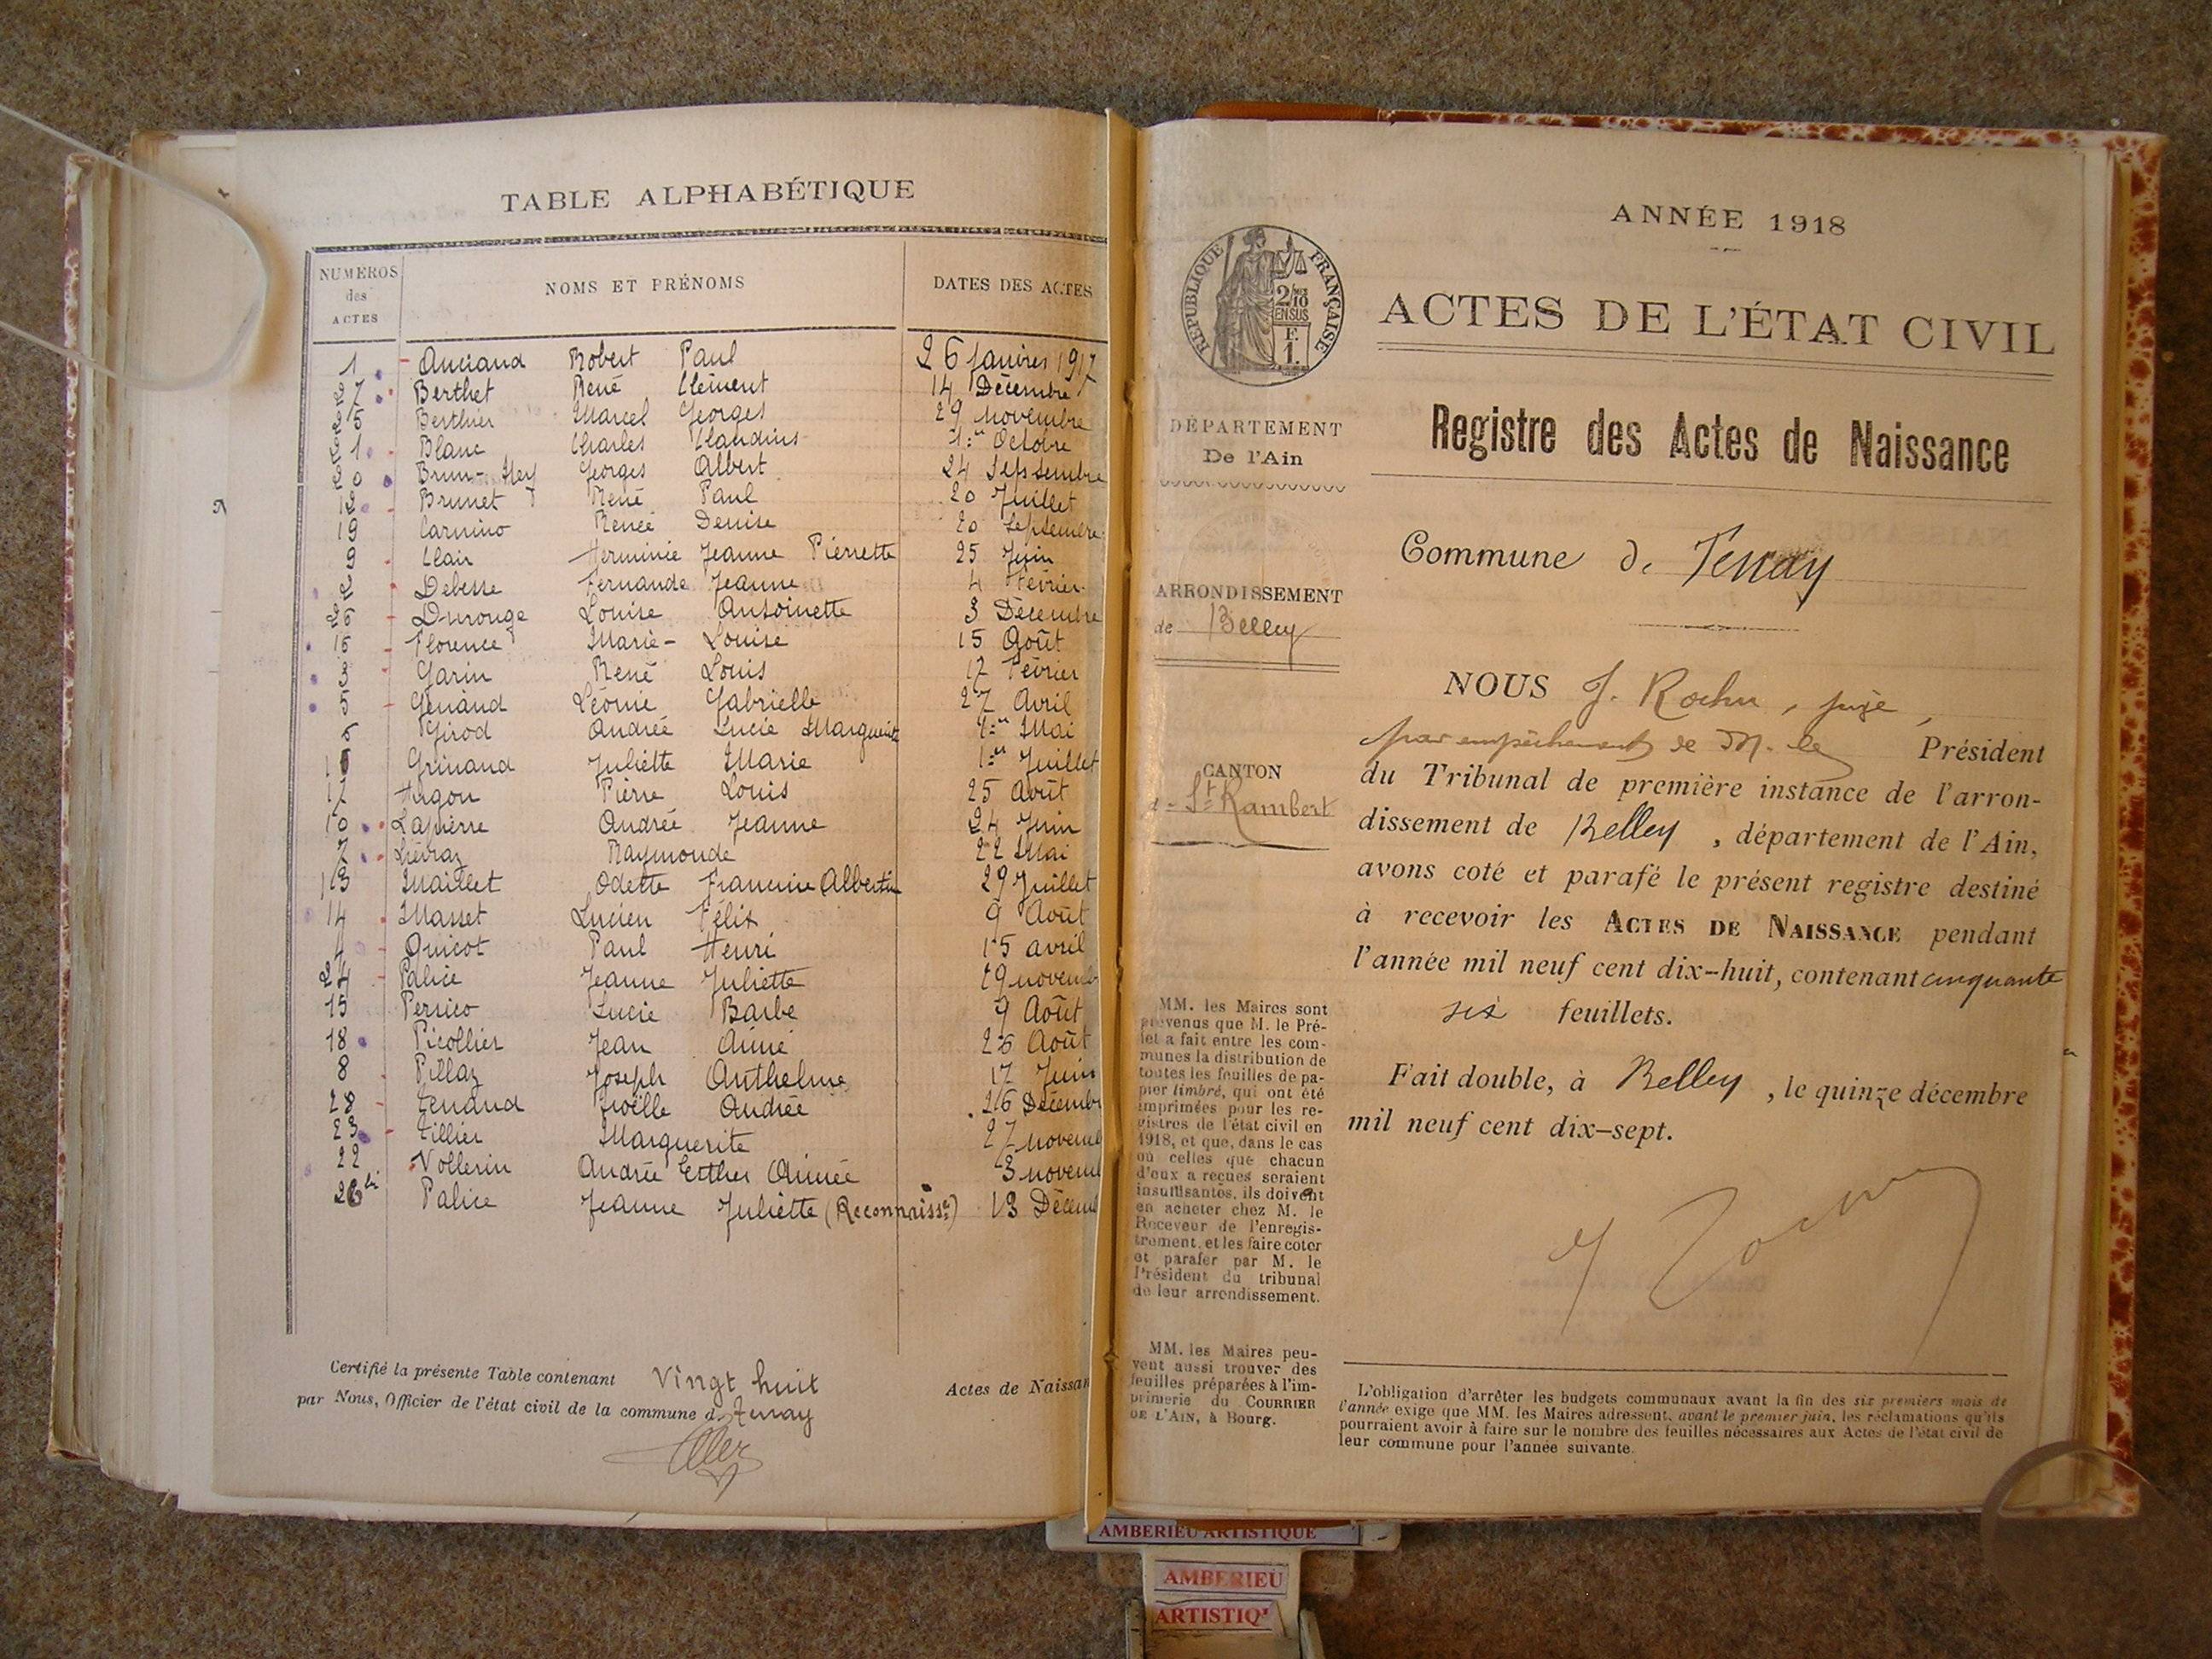 TABLE ALPHABÉTIQUE
NUMÉROS des ACTES
NOMS ET PRÉNOMS
DATES DES ACTES
1 Anciand Robert Paul 26 Janvier 1917
27 Berthet René Clément 14 Décembre
25 Berthier Marcel Georges 29 novembre
21 Blanc Charles Claudius 1er Octobre
20 Brun- Georges Albert 24 Septembre
12 Brunet René Paul 20 Juillet
19 Carmino Renée Denise 20 Septembre
9 Clair Herminie Jeanne Pierrette 25 Juin
2 Debesse Fernande Jeanne 4 Février
26 Durouge Louise Antoinette 3 Décembre
16 Florence Marie-Louise 15 Août
3 Garin René Louis 17 Février
5 Genand Léonie Gabrielle 27 Avril
6 Girod Andrée Lucie Marguerite 1er Mai
11 Grinand Juliette Marie 1er Juillet
17 Hugon Pierre Louis 25 Août
10 Lapierre Andrée Jeanne 24 Juin
7 Liévraz Raymonde 22 Mai
13 Maillet Odette Francine Albertine 29 Juillet
14 Masset Lucien Félix 9 Août
4 Quicot Paul Henri 15 avril
24 Palice Jeanne Juliette 29 novemb
15 Persico Lucie Barbe 9 Août
18 Picollier Jean Aimé 26 Août
8 Pillaz Joseph Anthelme 17 Juin
28 Tenand Joëlle Andrée 26 Décembr
23 Tillier Marguerite 27 novemb
22 Vollerin Andrée Esther Aimée 3 novem
26bis Palice Jeanne Juliette (Reconnaisse) 13 Décem
Certifié la présente Table contenant Vingt huit Actes de Naissan
par Nous, Officier de l'état civil de la commune d. Tenay
ANNÉE 1918
RÉPUBLIQUE FRANÇAISE
2/10 EN SUS
F. 1.
ACTES DE L'ÉTAT CIVIL
DÉPARTEMENT
De l'Ain
Registre des Actes de Naissance
Commune de Tenay
ARRONDISSEMENT
de Belley
CANTON
St Rambert
NOUS J. Rochu, juge,
par empêchement de M. le Président
du Tribunal de première instance de l'arron-
dissement de Belley, département de l'Ain,
avons coté et parafé le présent registre destiné
à recevoir les ACTES DE NAISSANCE pendant
l'année mil neuf cent dix-huit, contenant cinquante
six feuillets.
Fait double, à Belley, le quinze décembre
mil neuf cent dix-sept.
MM. les Maires sont
prévenus que M. le Pré-
fet a fait entre les com-
munes la distribution de
toutes les feuilles de pa-
pier timbré, qui ont été
imprimées pour les re-
gistres de l'état civil en
1918, et que, dans le cas
où celles que chacun
d'eux a reçues seraient
insuffisantes, ils doivent
en acheter chez M. le
Receveur de l'enregis-
trement, et les faire coter
et parafer par M. le
Président du tribunal
de leur arrondissement.
MM. les Maires peu-
vent aussi trouver des
feuilles préparées à l'im-
primerie du COURRIER
DE L'AIN, à Bourg.
L'obligation d'arrêter les budgets communaux avant la fin des six premiers mois de
l'année exige que MM. les Maires adressent, avant le premier juin, les réclamations qu'ils
pourraient avoir à faire sur le nombre des feuilles nécessaires aux Actes de l'état civil de
leur commune pour l'année suivante.
AMBERIEU ARTISTIQUE
AMBERIEU
ARTISTIQ'